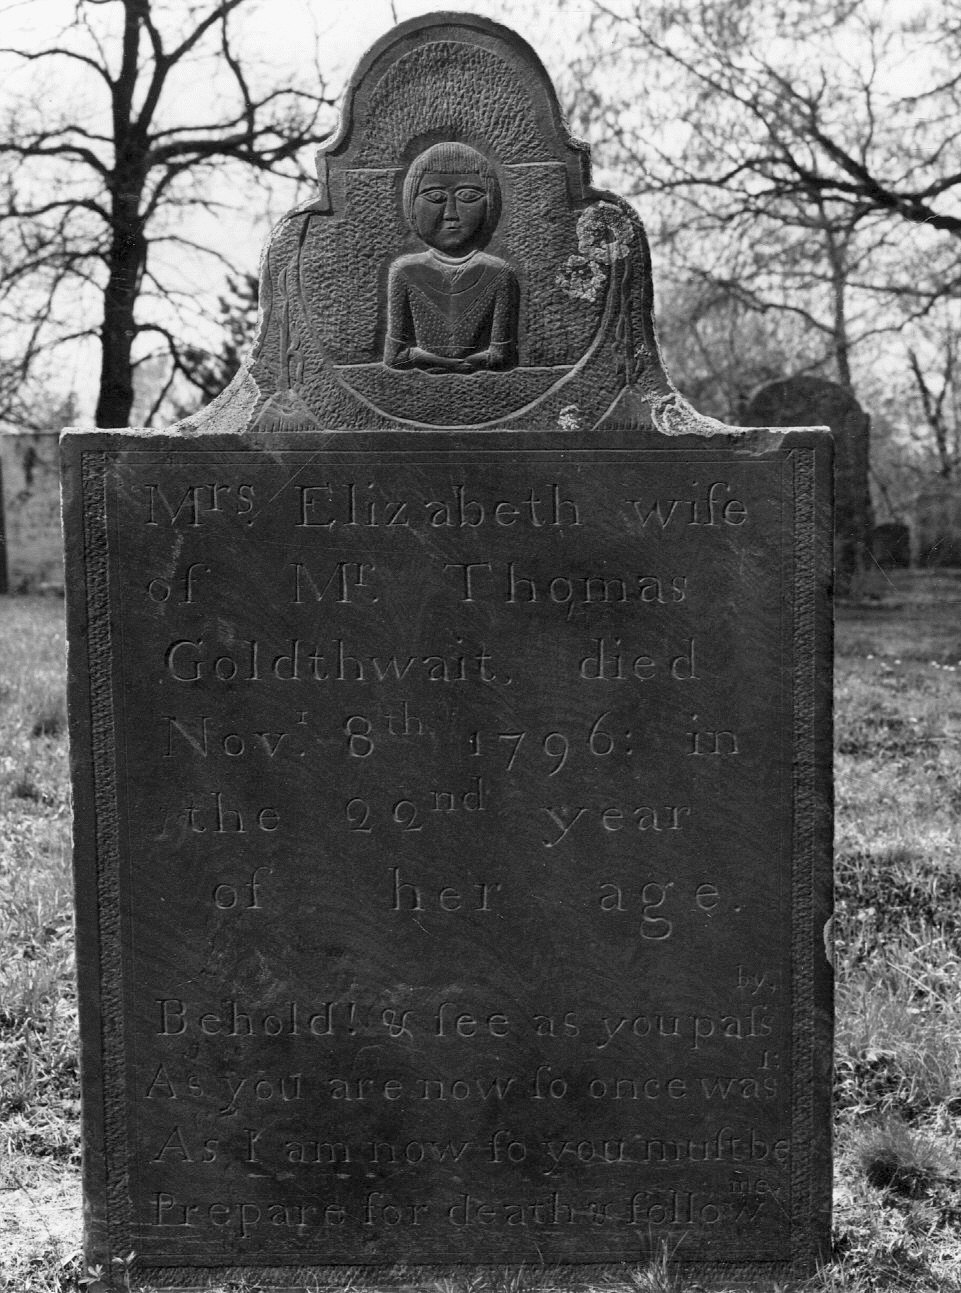 Mrs. Elizabeth wife
of Mr. Thomas
Goldthwait, died
Novr. 8th. 1796: in
the 22nd year
of her age.
Behold! & ſee as you paſs by,
As you are now ſo once was I:
As I am now ſo you muſt be
Prepare for death & follow me.